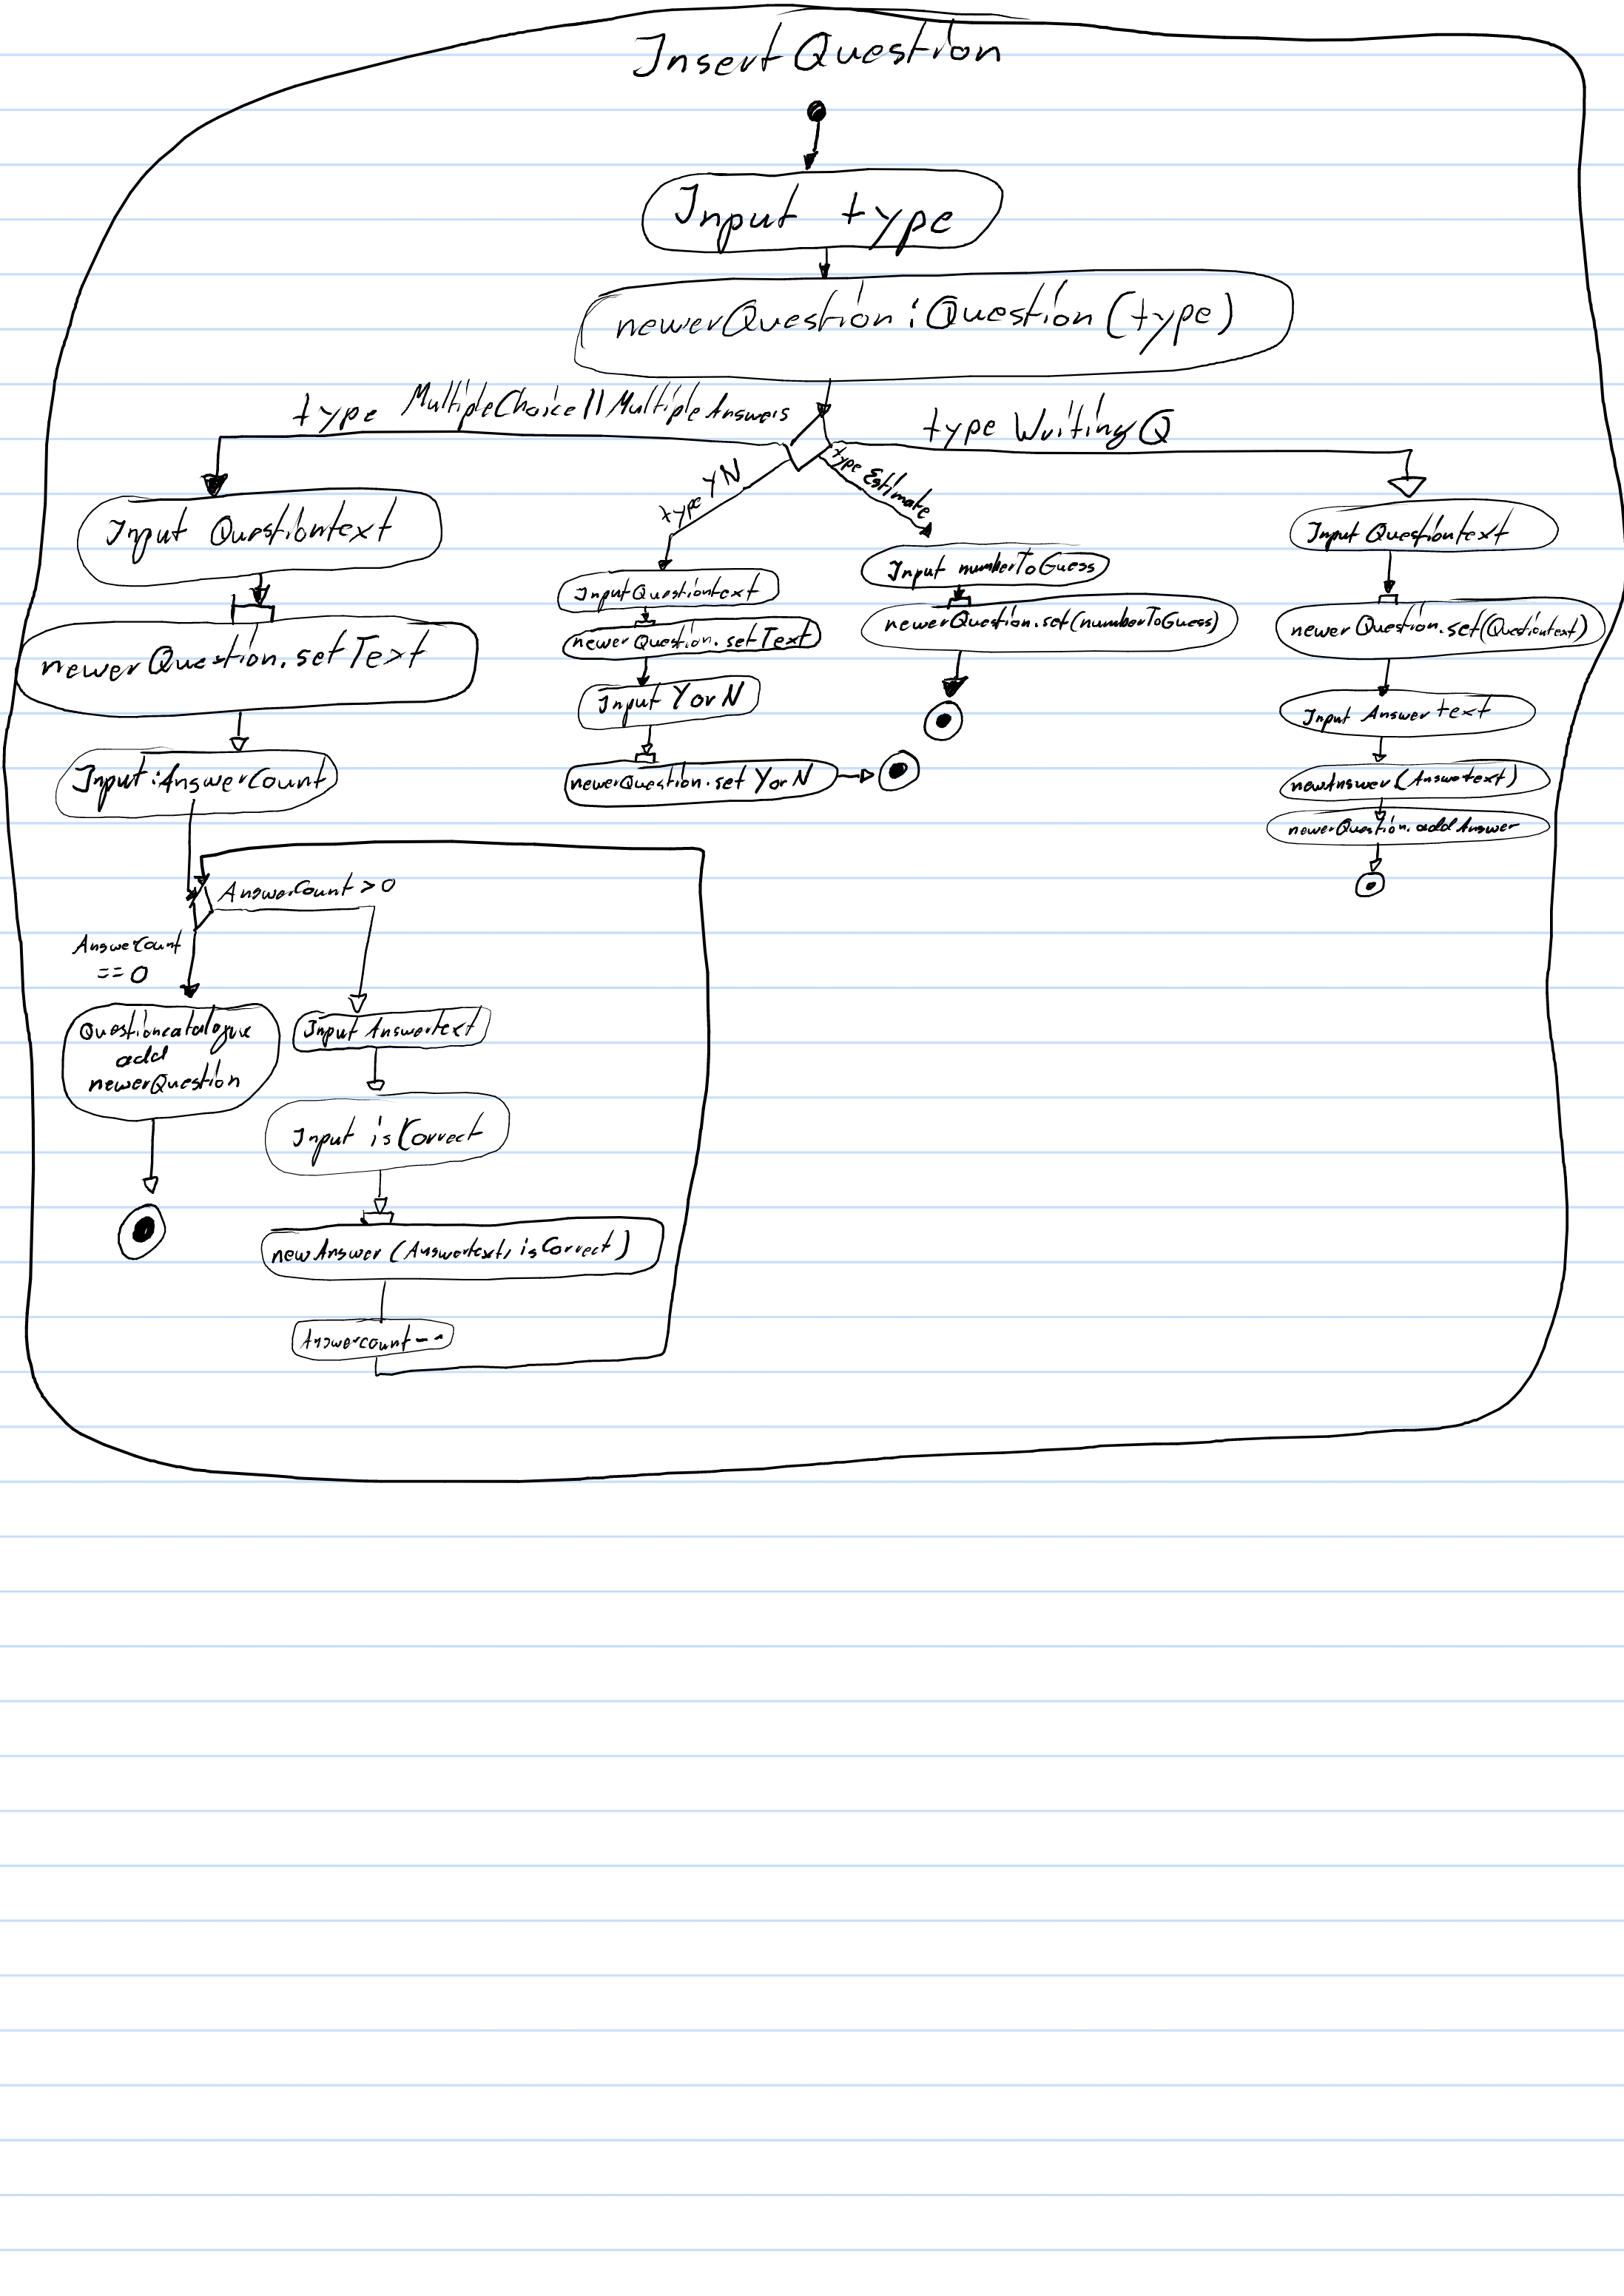 InsertQuestion
Input type
newerQuestion:Question(type)
type MultipleChoice||MultipleAnswers
type YN
type Estimate
type WritingQ
Input Questiontext
newerQuestion.setText
Input:AnswerCount
AnswerCount>0
AnswerCount
==0
Questioncatalogue
add
newerQuestion
Input Answertext
Input isCorrect
newAnswer(Answertext, isCorrect)
Answercount--
InputQuestiontext
newerQuestion.setText
Input YorN
newerQuestion.set YorN
Input numberToGuess
newerQuestion.set(numberToGuess)
Input Questiontext
newerQuestion.set(Questiontext)
Input Answertext
newAnswer(Answertext)
newerQuestion.addAnswer